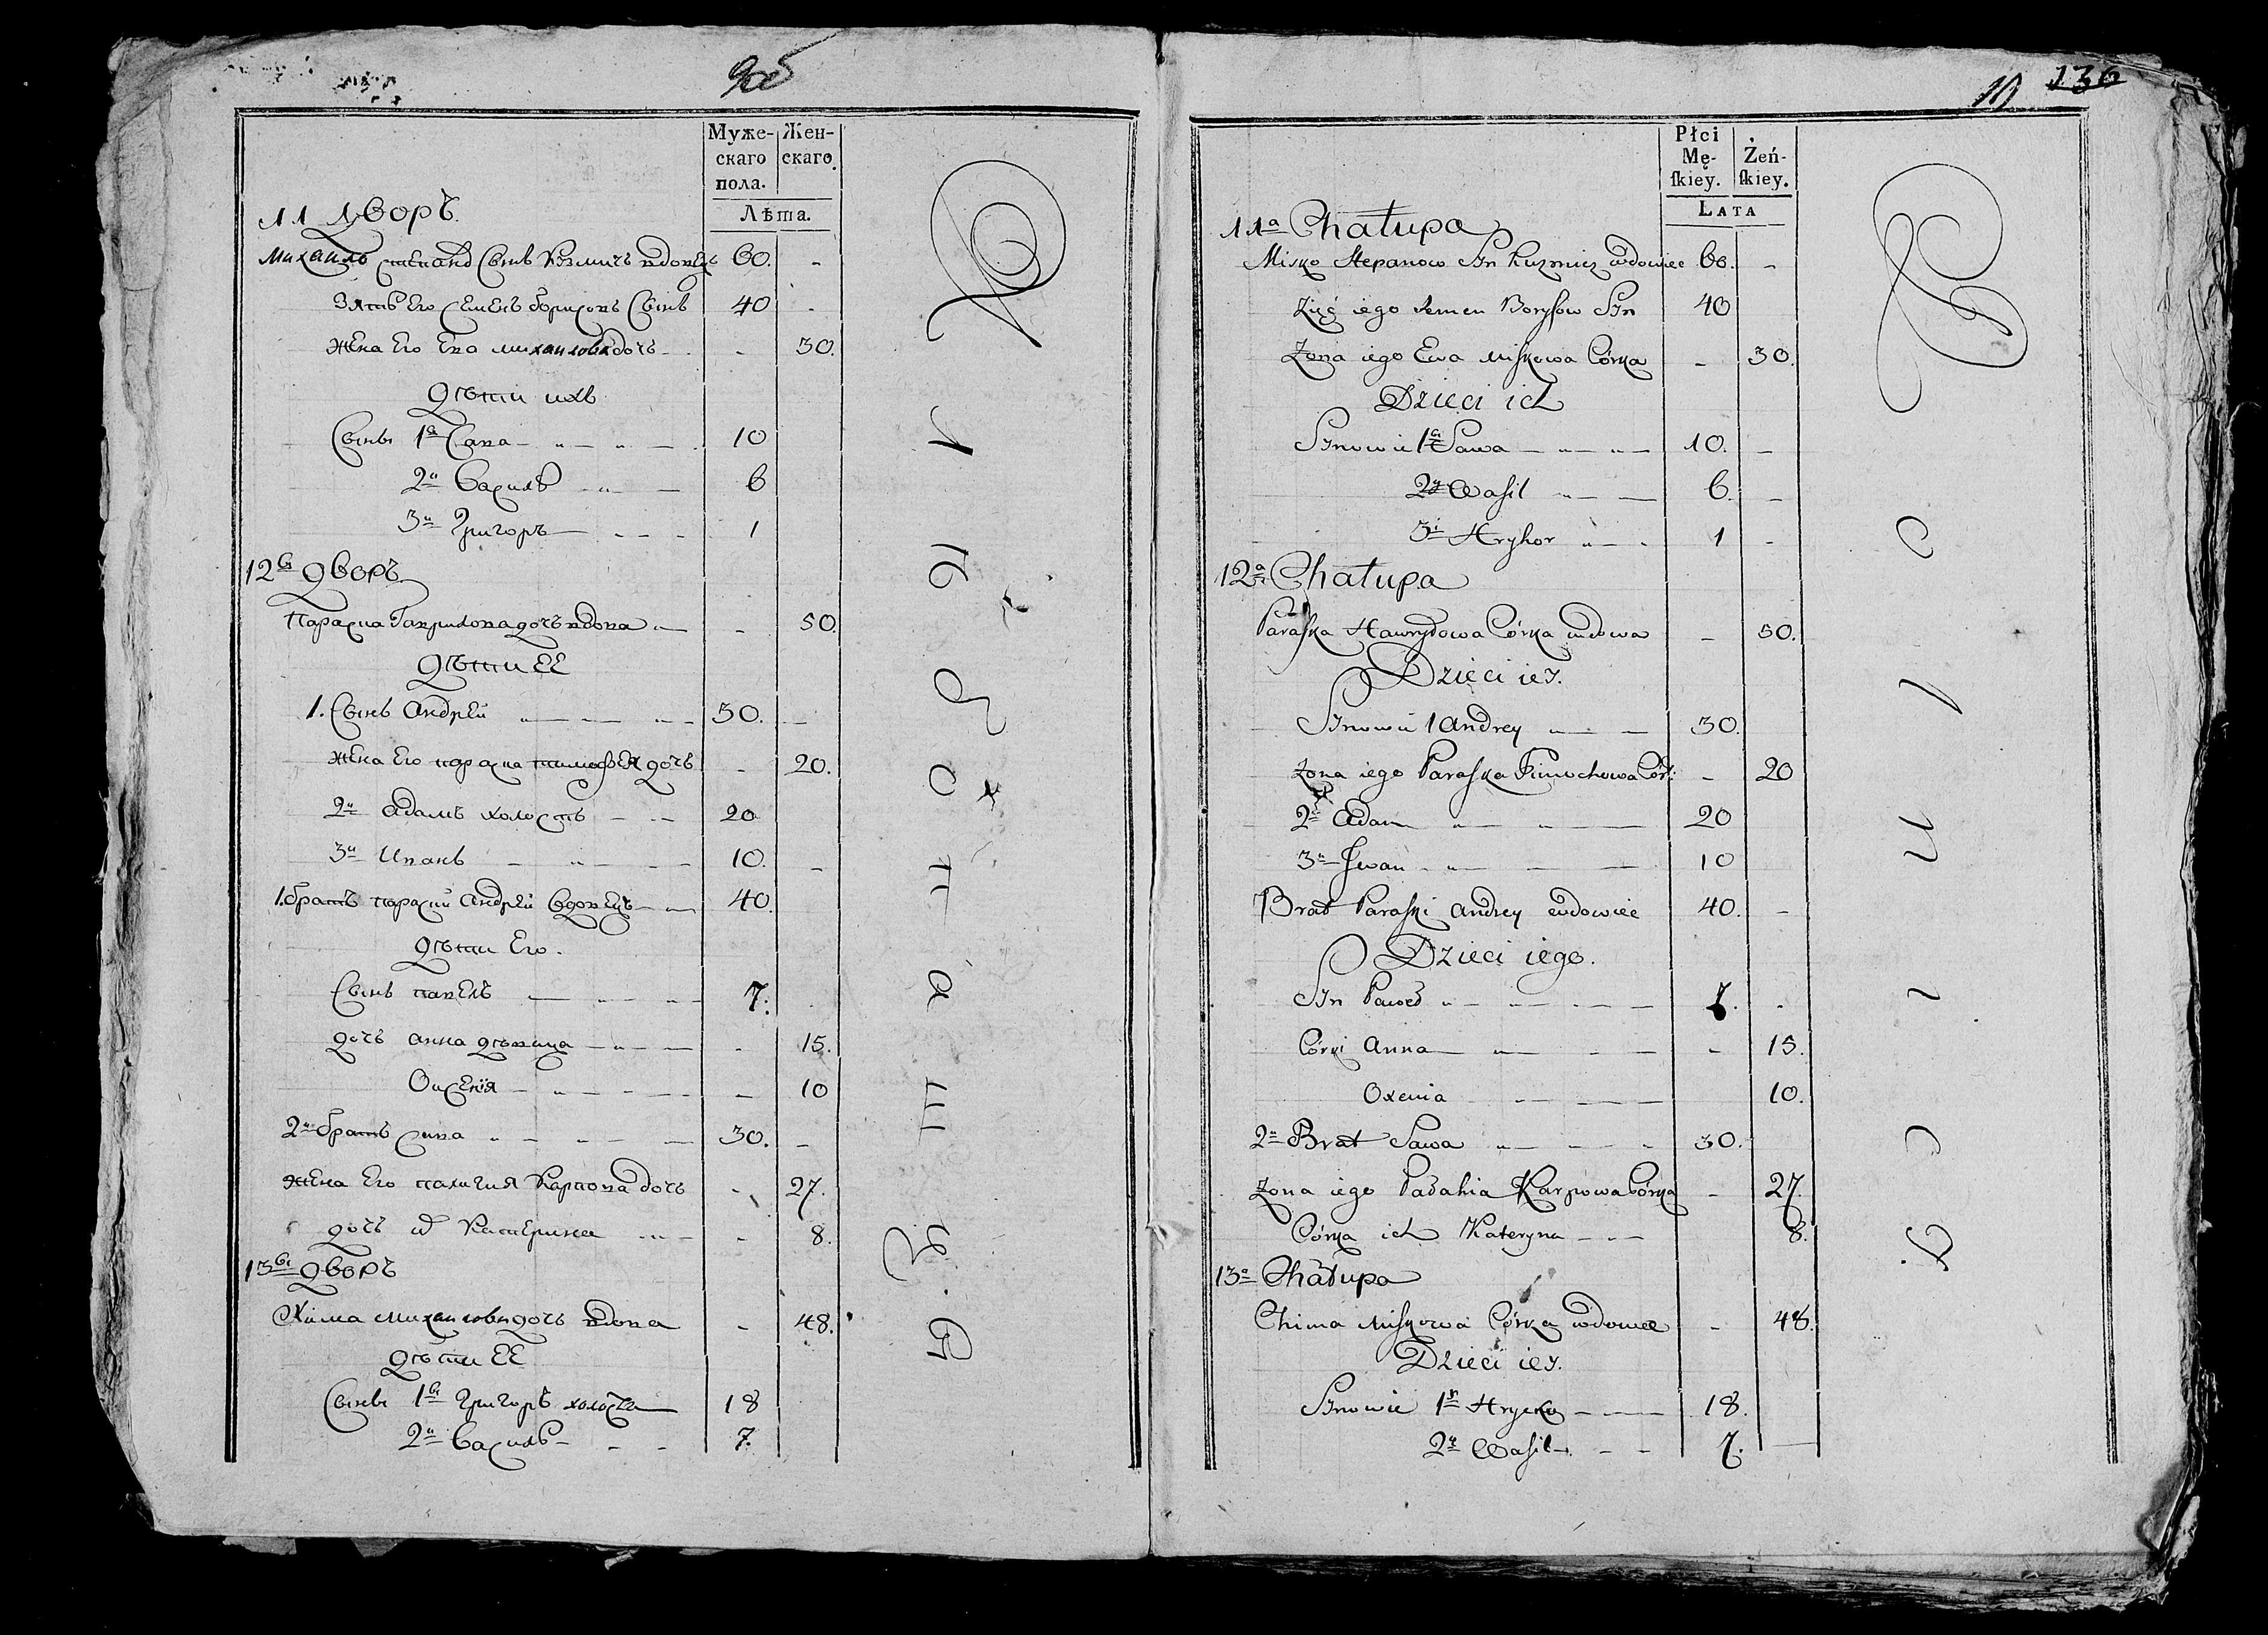 Муже-
скаго
пола.
Жен-
скаго
Лѣта.
11 дворъ
Михаилъ степановъ сынъ Кузмичъ вдовецъ 60. -
Зять Его Семенъ борисовъ Сынъ 40 -
Жена Его Ева михаилова дочь - 30.
Дѣти ихъ
Сыны 1й Сава 10
2й Василь 6
3й Григоръ 1
12й дворъ
Параска Гаврилова дочь вдова - 50.
Дѣти ЕЕ
1. Сынъ Андрей 30. -
Жена Его параска тимофея дочь - 20.
2й Адамъ холостъ 20
3й Иванъ 10. -
1. братъ параски Андрей вдовецъ 40.
Дѣти Его.
Сынъ павелъ 7.
дочь анна дѣвица - 15.
Оксенія - 10
2й братъ сава 30. -
Жена Его палагия Карпова дочь - 27.
дочь их Катерина - 8.
13й дворъ
Хима михаилова дочь вдова - 48.
Дѣти ЕЕ
Сыны 1й Григоръ холостъ 18
2й Василь 7.
136
Płci
Mę-
ſkiey.
Żeń-
ſkiey.
Lata
11a Chałupa
Misko Stepanow Syn Kuzmicz wdowiec 60. -
Zięć iego Semen Borysow Syn 40
Żona iego Ewa Miskowa Córka - 30.
Dzieci ich
Synowie 1y Sawa 10. -
2y Wasil 6. -
3i Hryhor 1 -
12a Chałupa
Paraska Hawryłowa Córka wdowa - 50.
Dzieci iey.
Synowie 1 Andrey 30.
Żona iego Paraska Timochowa Cór: - 20
2i Adam 20
3i Iwan 10
Brat Paraski Andrey wdowiec 40. -
Dzieci iego.
Syn Paweł 7. -
Córki Anna - 15.
Oxenia 10.
2i Brat Sawa 30.
Żona iego Pałahia Karpowa Córka - 27.
Córka ich Kateryna 8.
13a Chałupa
Chima Miskowa Córka wdowa - 48.
Dzieci iey.
Synowie 1y Hrycko 18.
2y Wasil 7.